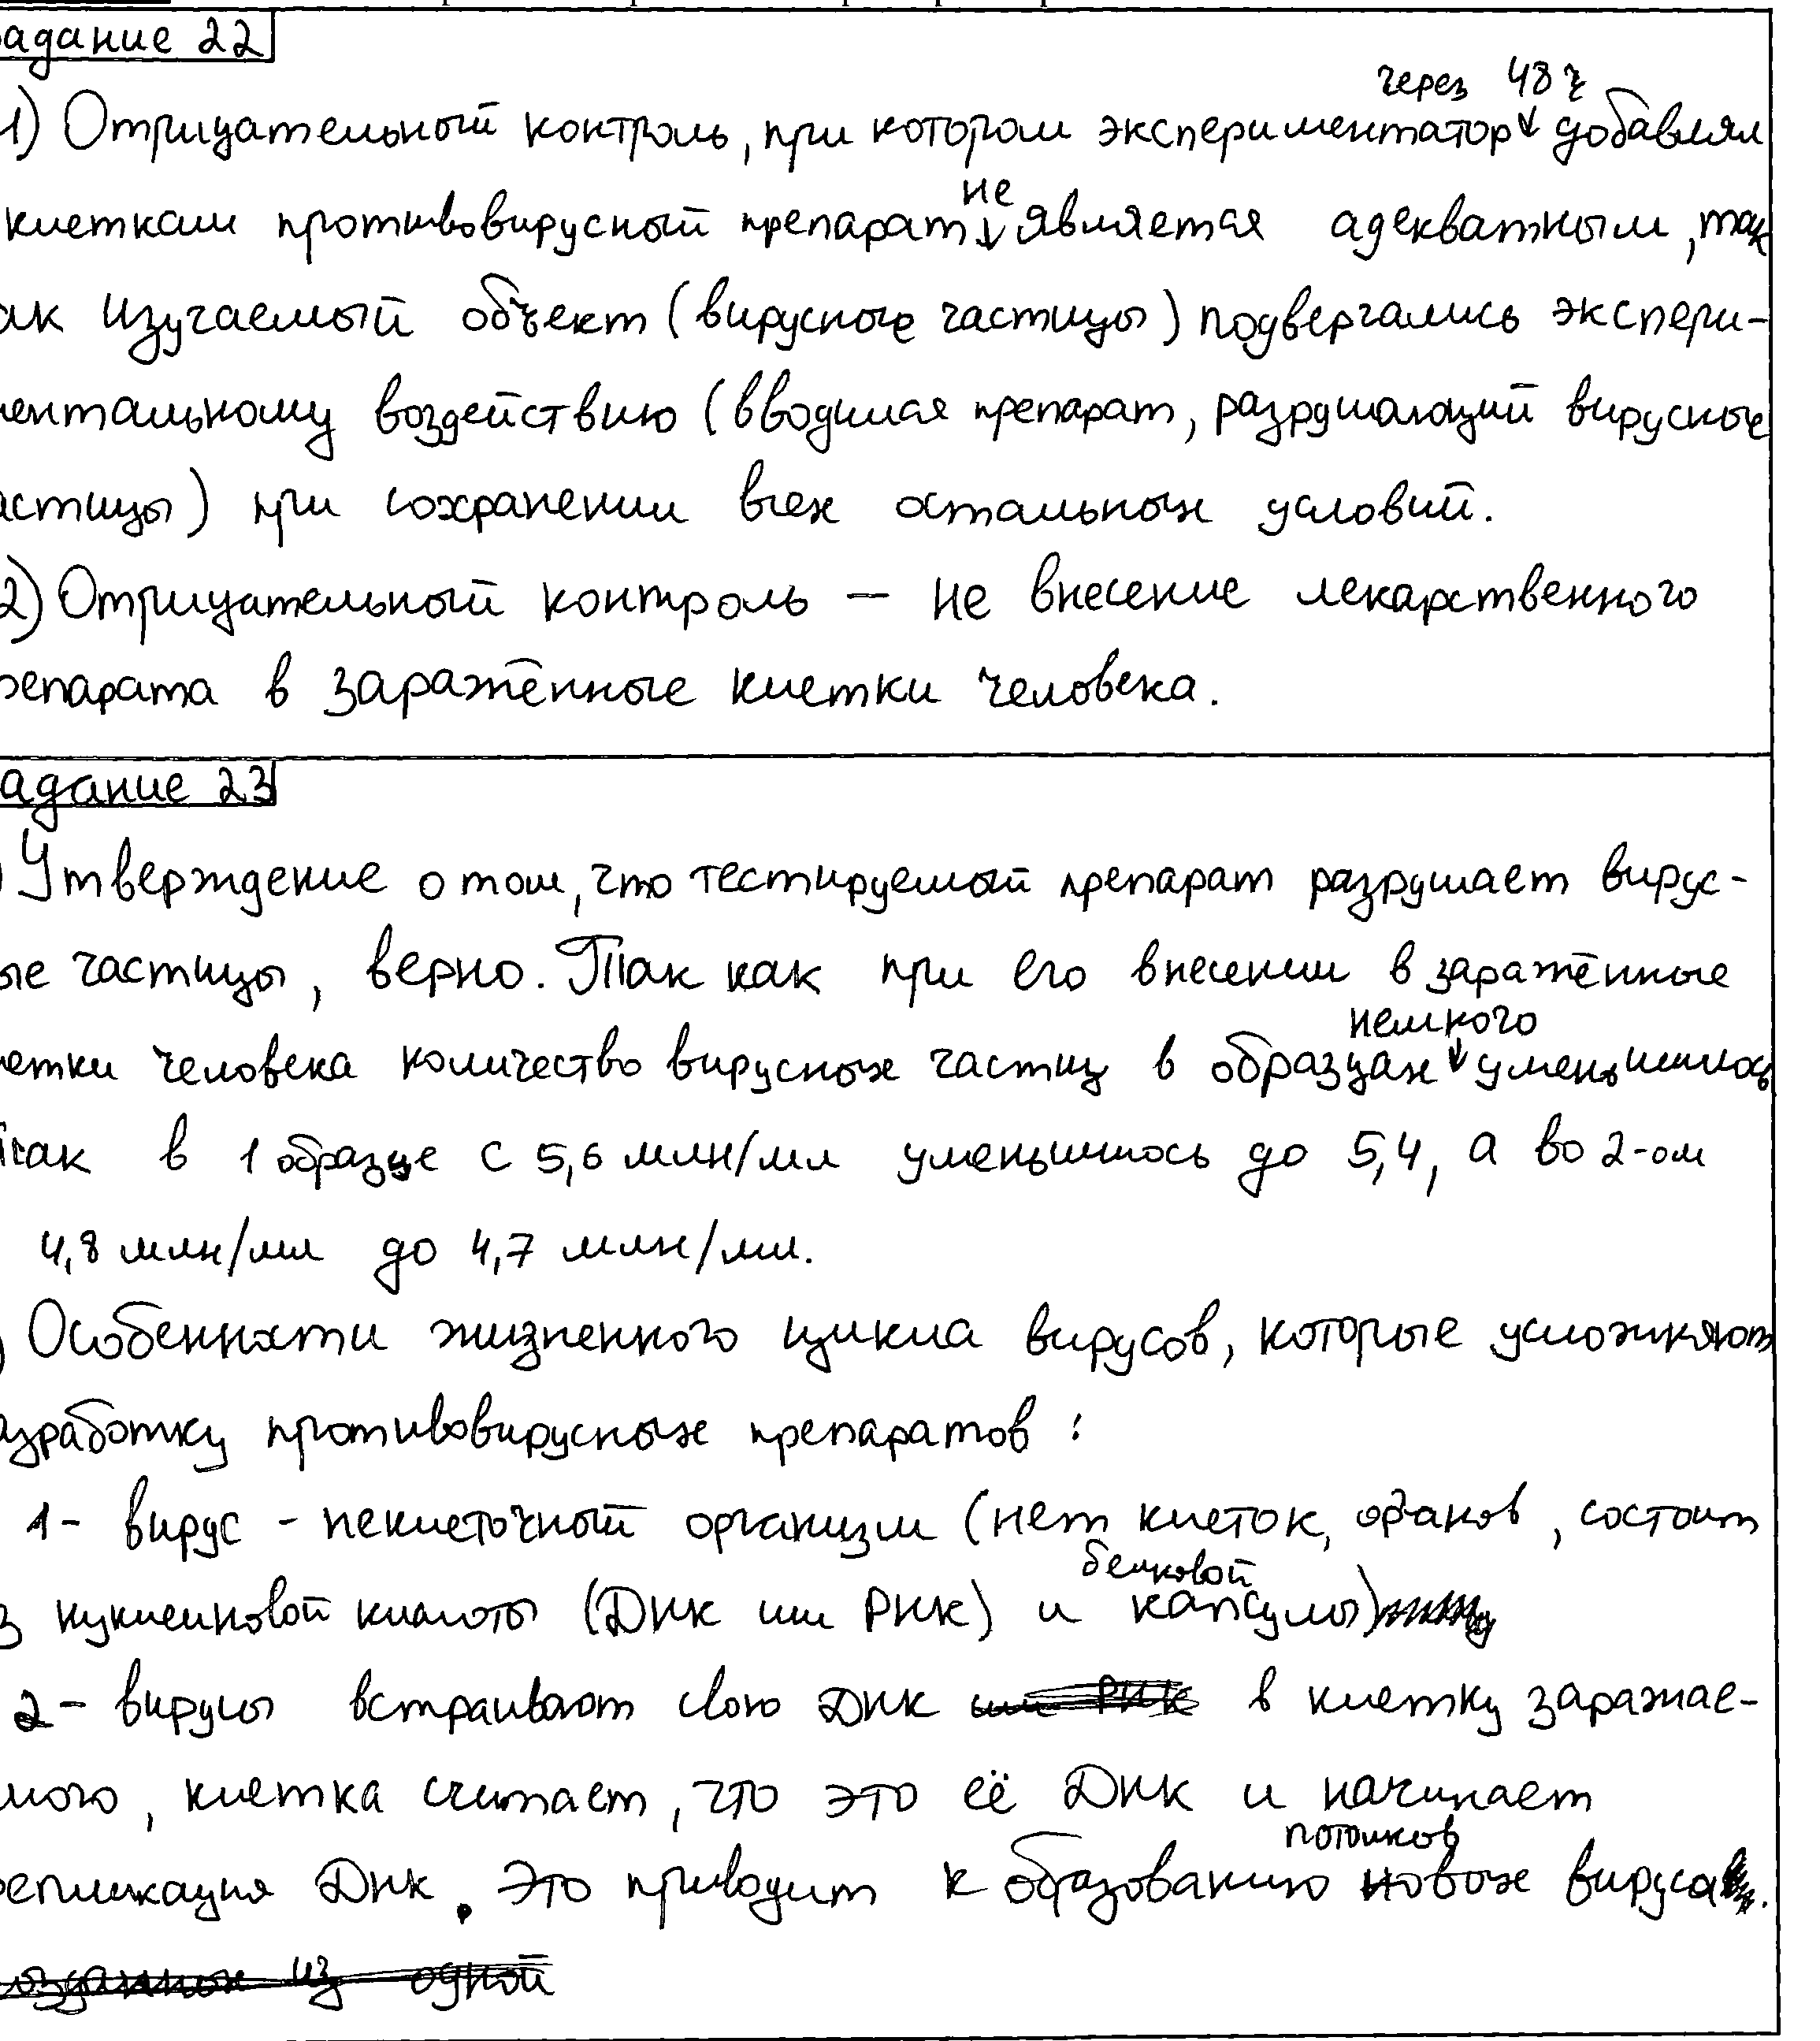 адание 22
через 48 ч
1) Отрицательный контроль, при котором экспериментатор добавлял
клеткам противовирусный препарат не является адекватным, так
ак изучаемый объект (вирусные частицы) подвергались экспери-
ментальному воздействию (вводился препарат, разрушающий вирусные
астицы) при сохранении всех остальных условий.
2) Отрицательный контроль — не внесение лекарственного
репарата в заражённые клетки человека.
адание 23
) Утверждение о том, что тестируемый препарат разрушает вирус-
ые частицы, верно. Так как при его внесении в заражённые
етки человека количество вирусных частиц в образцах немного уменьшилось
Так в 1 образце с 5,6 млн/мл уменьшилось до 5,4, а во 2-ом
4,8 млн/мл до 4,7 млн/мл.
) Особенности жизненного цикла вирусов, которые усложняют
азработку противовирусных препаратов:
1- вирус - неклеточный организм (нет клеток, органов, состоит
з нуклеиновой кислоты (ДНК или РНК) и белковой капсулы)
2- вирусы встраивают свою ДНК или РНК в клетку заражае-
мого, клетка считает, что это её ДНК и начинает
репликация ДНК. Это приводит к образованию потомков новых вируса.
созданных из одной